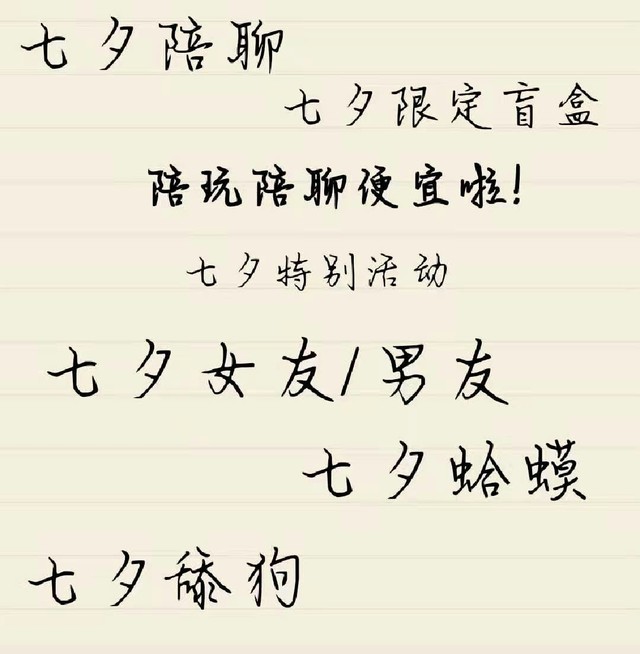 七夕陪聊
七夕限定盲盒
陪玩陪聊便宜啦!
七夕特别活动
七夕女友/男友
七夕蛤蟆
七夕舔狗